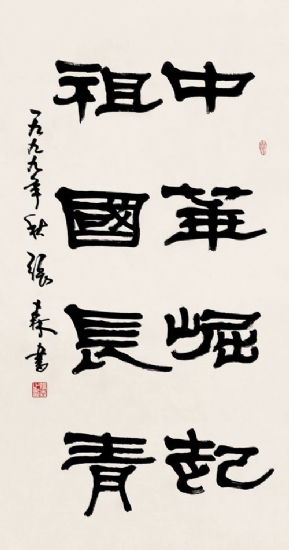 中華崛起
祖國長青
一九九九年秋張森書